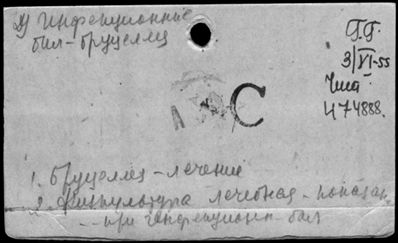 У инфекционные
бол-бруцеллез
Г.Г.
3/VI-55
474888.
С
1. бруцеллез - лечение
2. Физкультура лечебная - показан.
- при инфекционн. бол